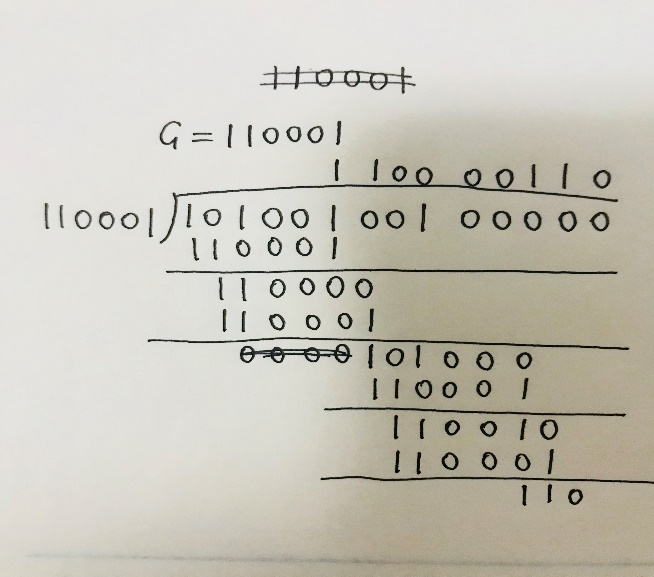 110001
G = 110001
1 100 00110
110001)101001 001 00000
110001
110000
110001
0000 101000
110001
110010
110001
110